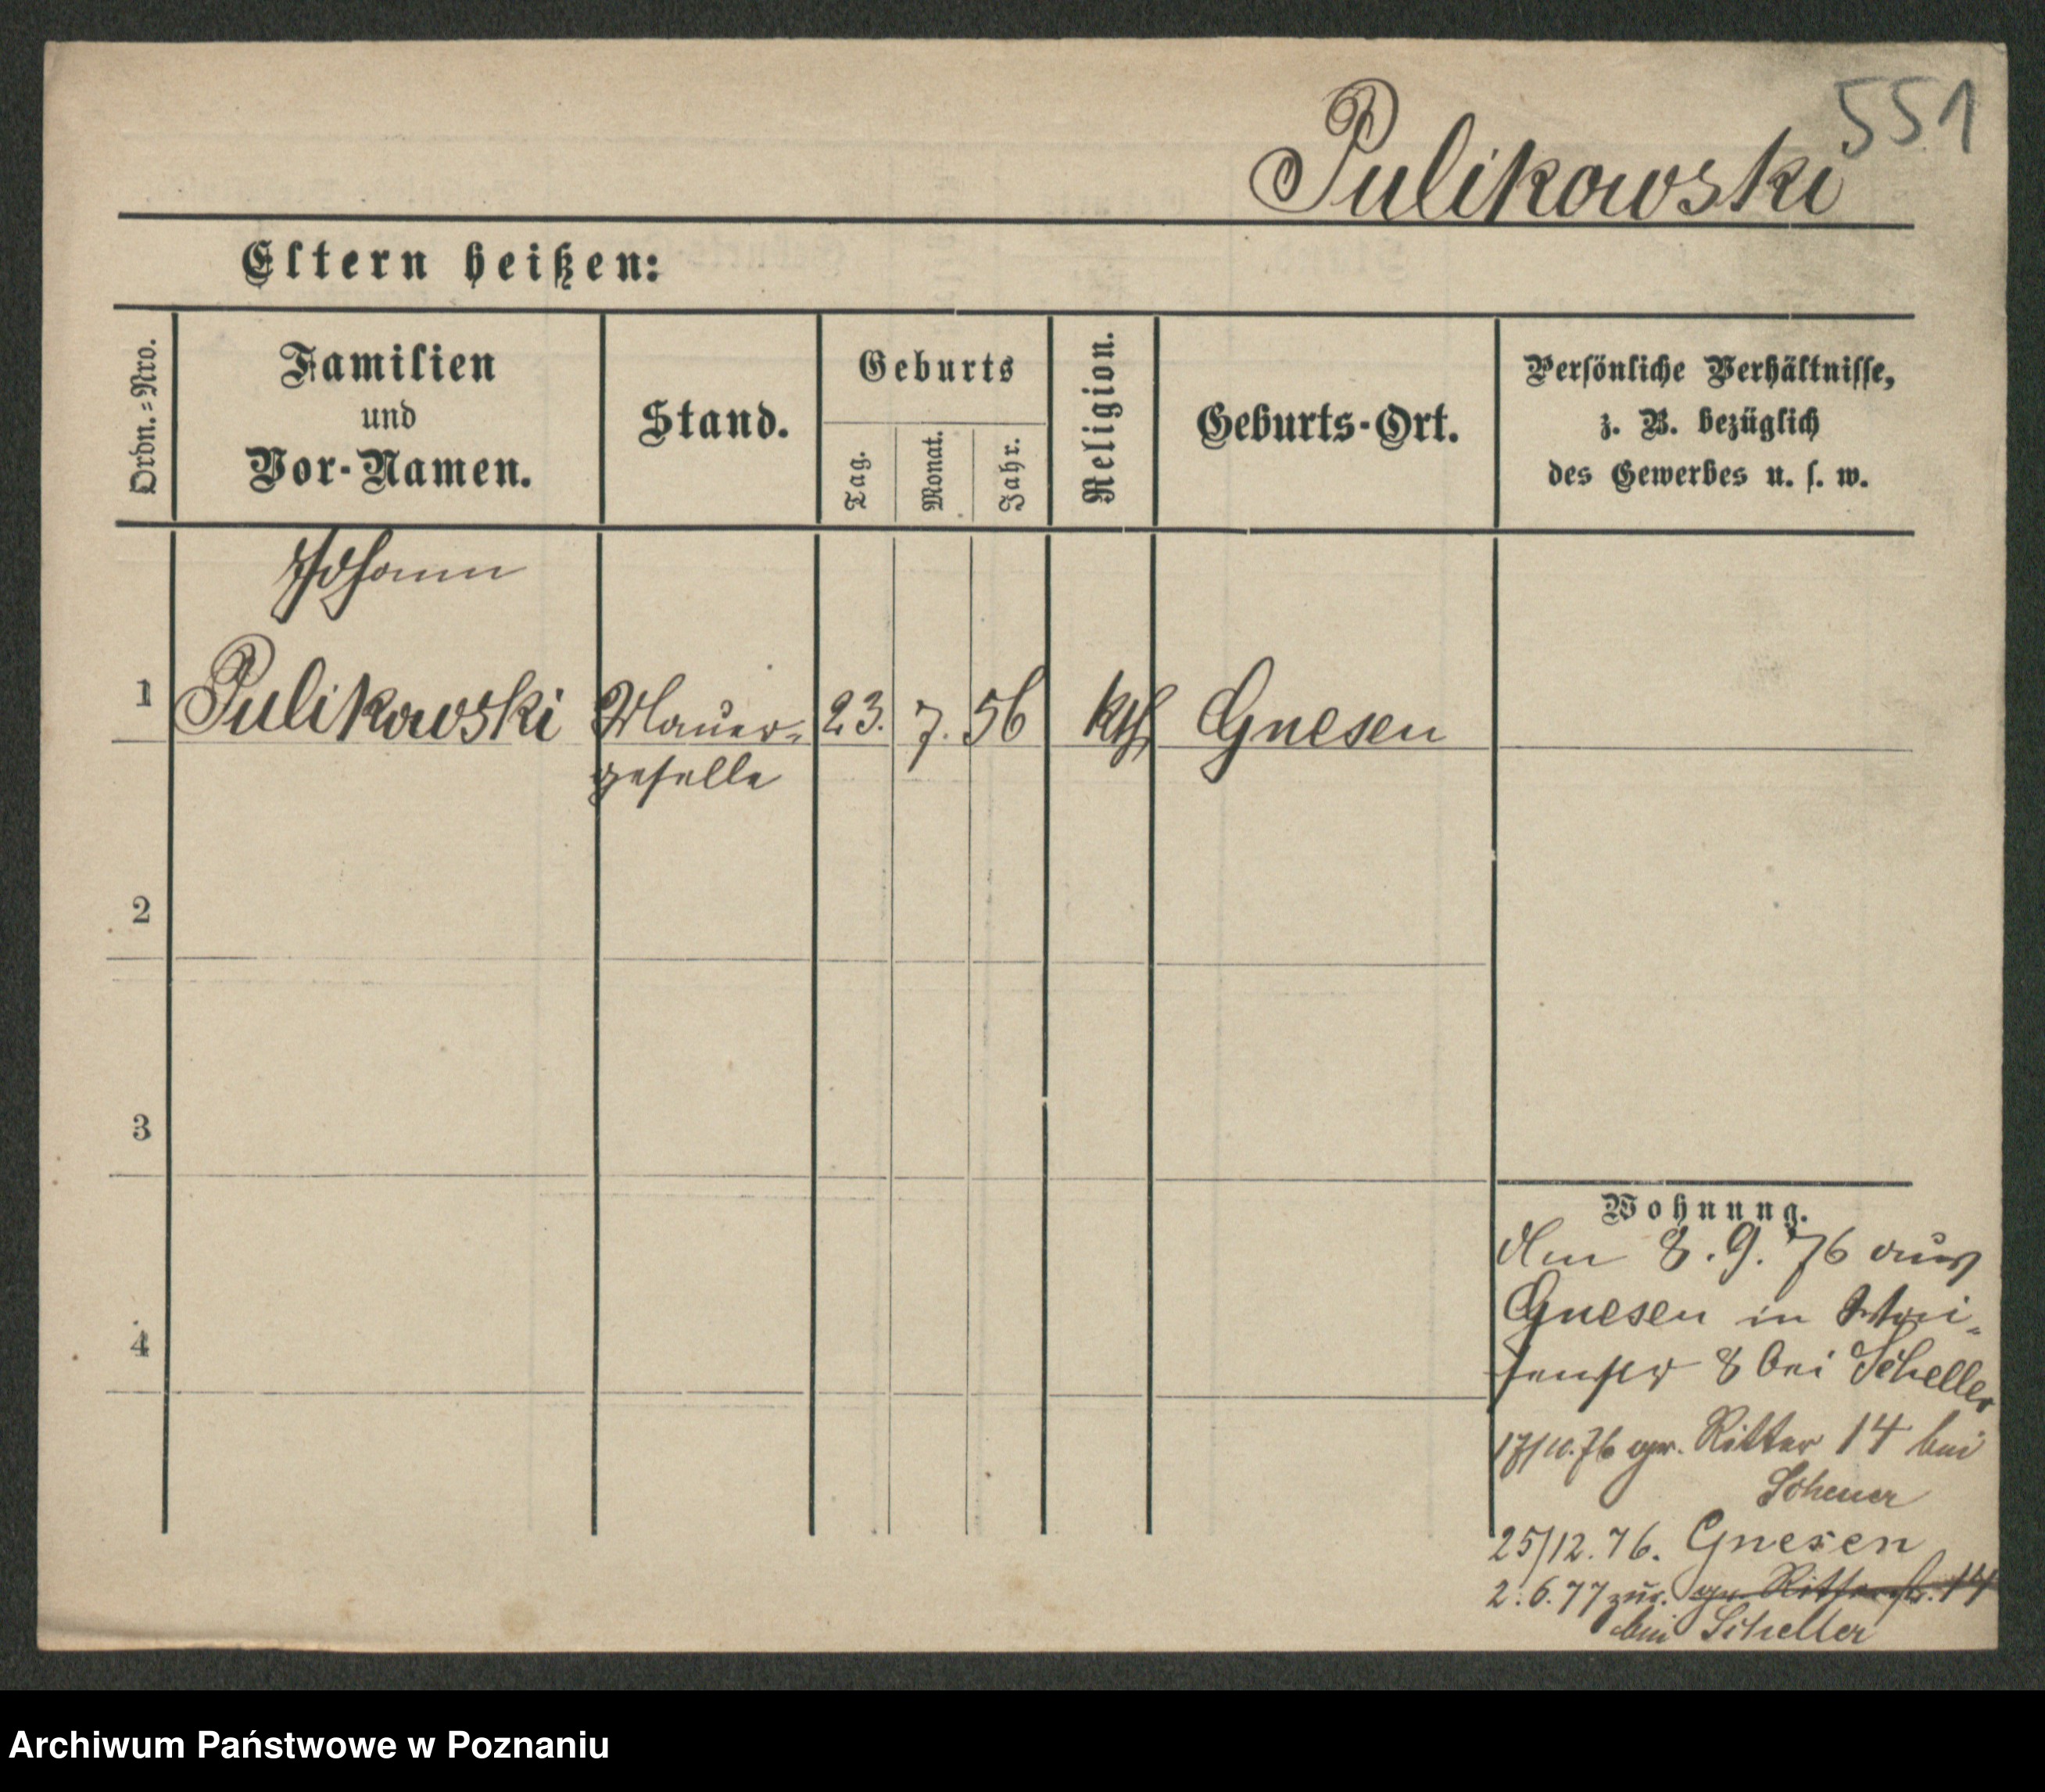 551
Pulikowski
Eltern heißen:
Ordn.=Nro.
Familien
und
Vor-Namen.
Stand.
Geburts
Tag.
Monat.
Jahr.
Religion.
Geburts-Ort.
Persönliche Verhältnisse,
z. B. bezüglich
des Gewerbes u. s. w.
Johann
1 Pulikowski Maurer- 23. 7. 56 kth Gnesen
geselle
2
3
4
Wohnung.
Am 8. 9. 76 aus
Gnesen in Wai-
senstr 8 bei Scheller
17/10.76 gr. Ritter 14 bei
Scheuer
25/12.76. Gnesen
2.6.77 zur. gr. Ritterstr. 14
bei Scheller
Archiwum Państwowe w Poznaniu